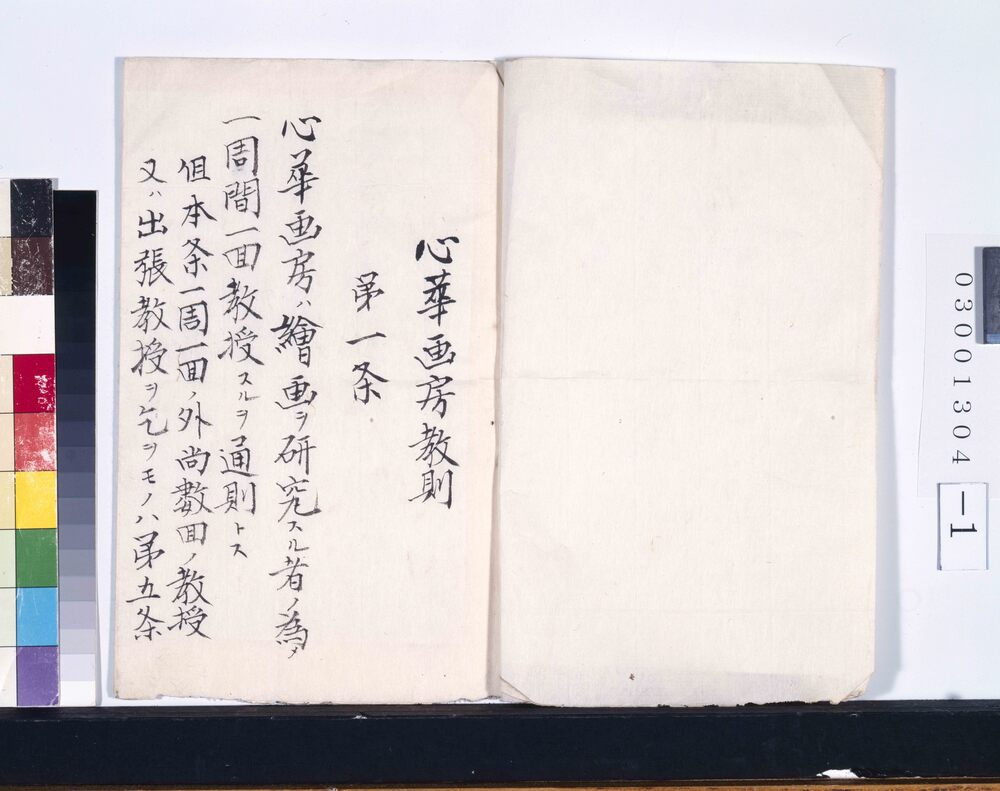 心華画房教則
第一条
心華画房ハ繪画ヲ研究スル者ノ為メ
一周間一面教授スルヲ通則トス
但本条一周一面ノ外尚数回ノ教授
又ハ出張教授ヲ乞ヲモノハ第五条
03001304
-1